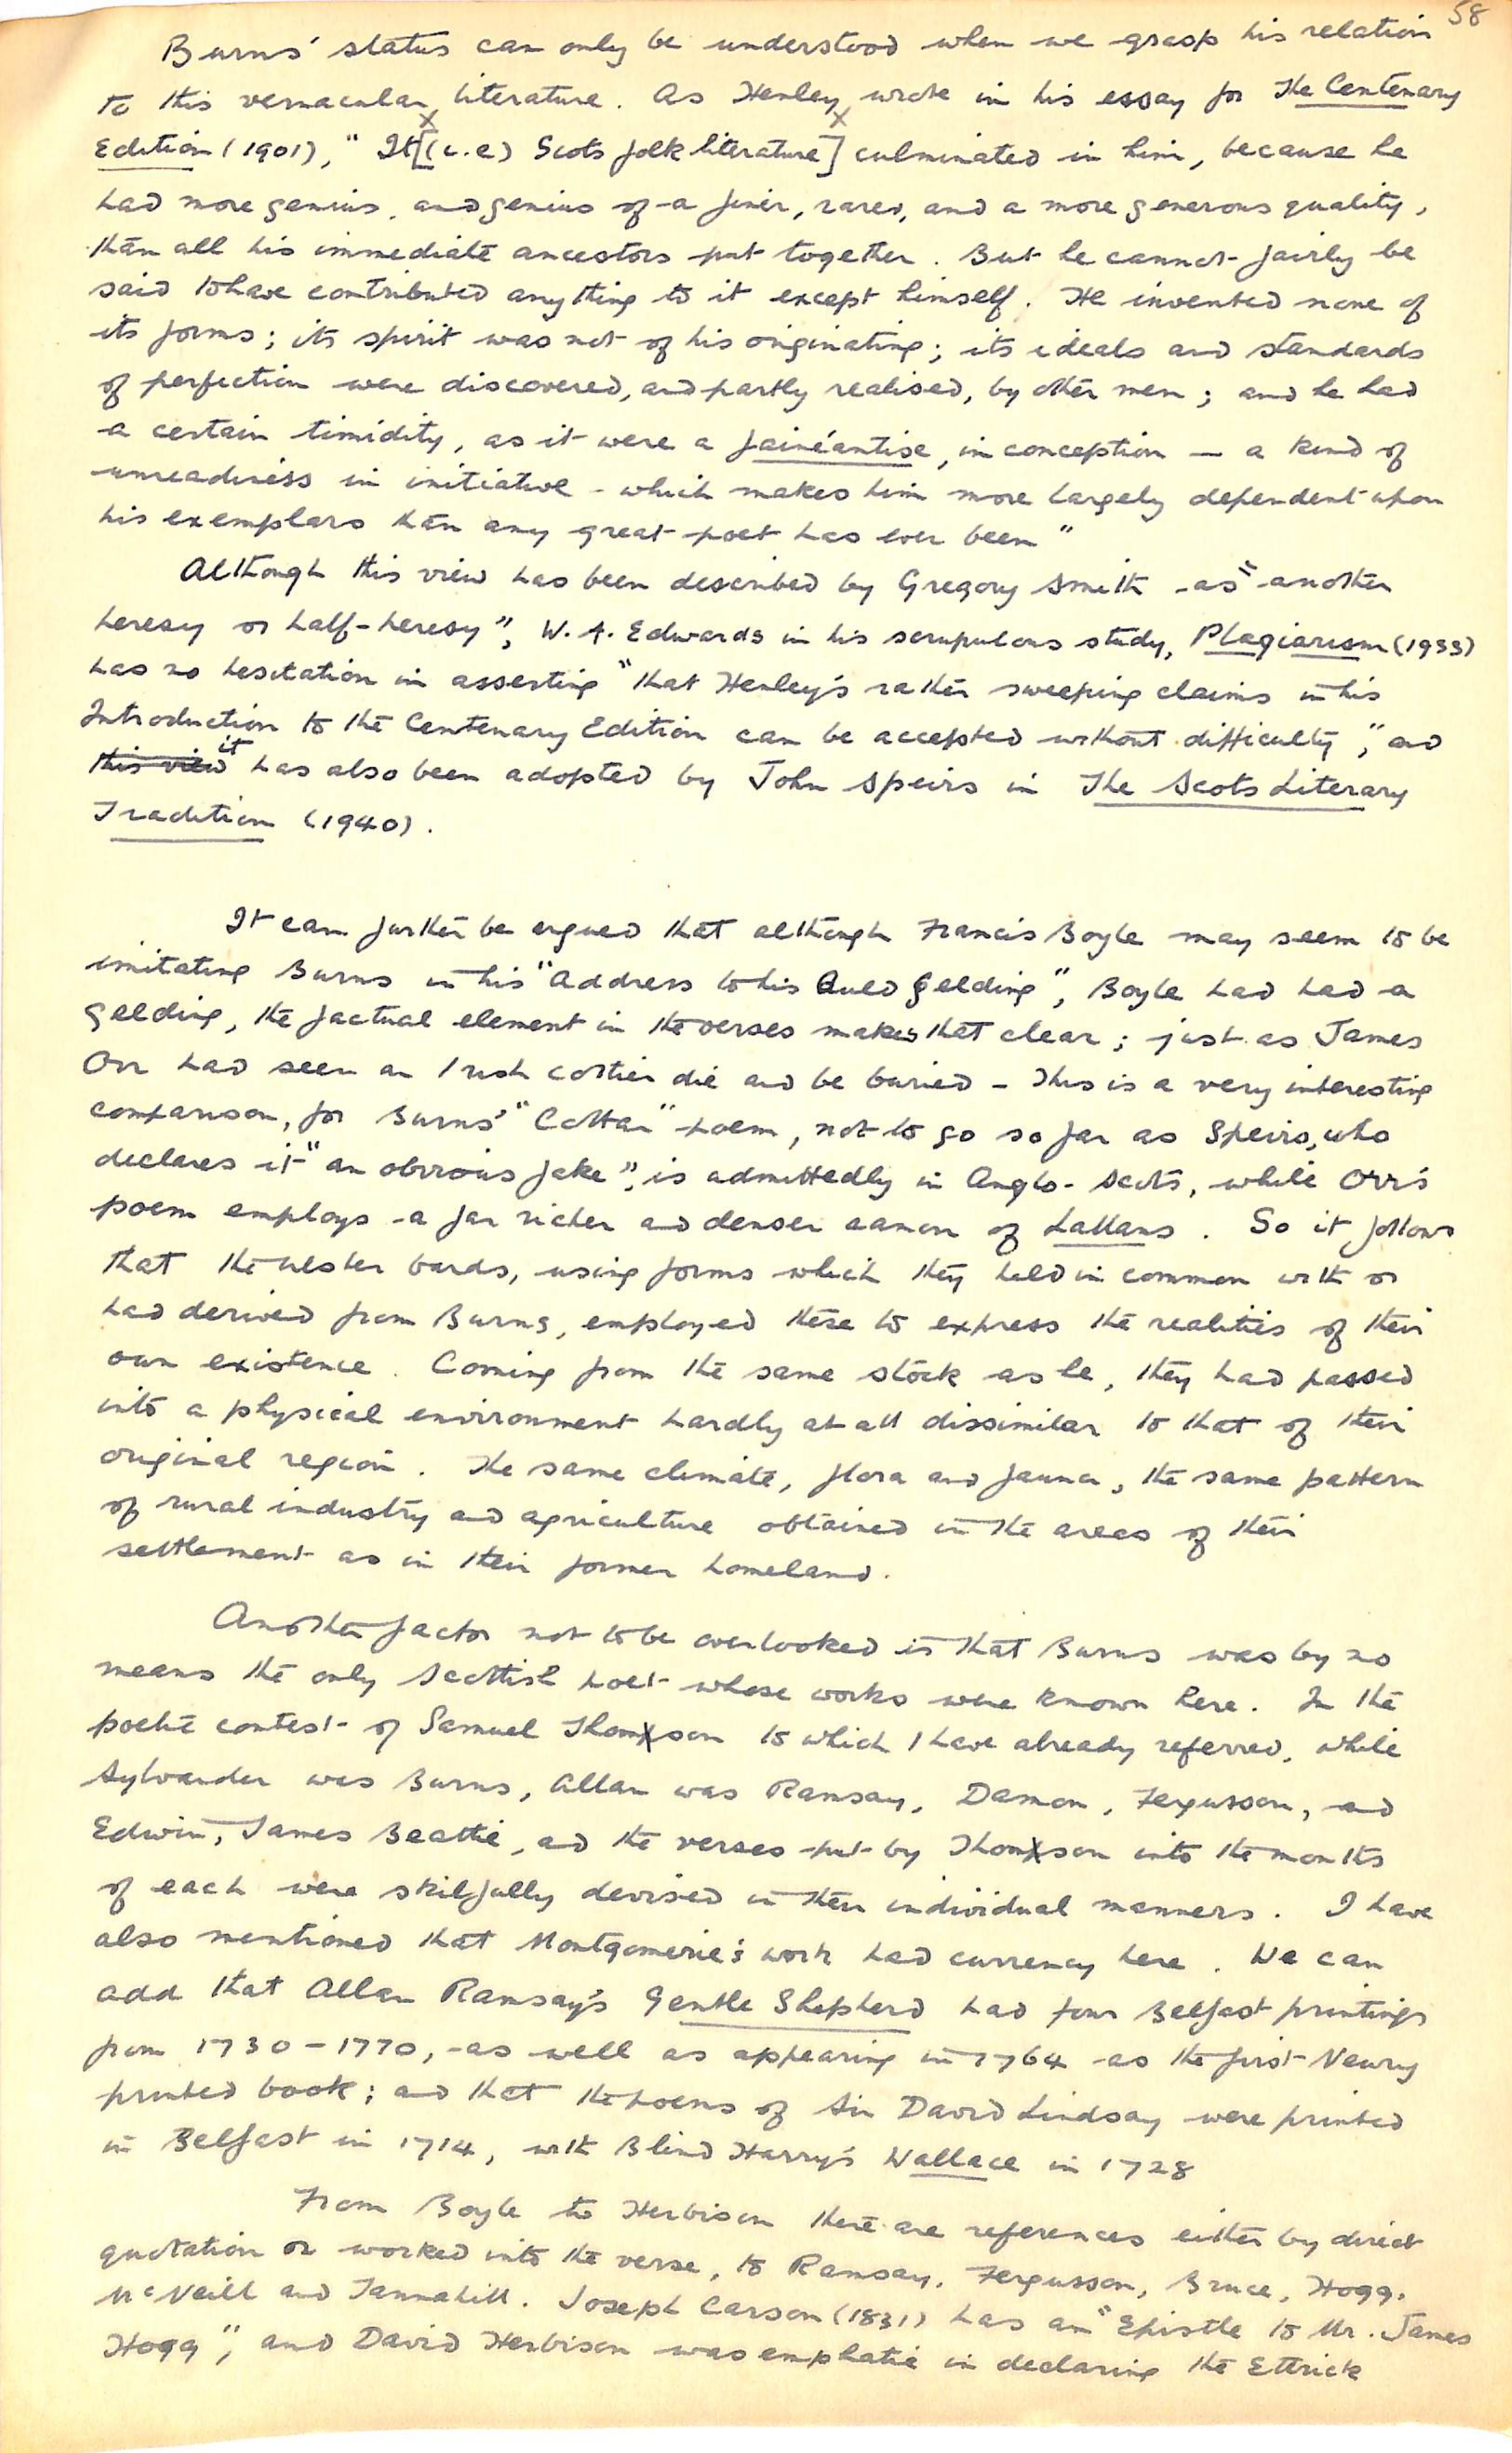 58
Burns' status can only be understood when we grasp his relation
to this vernacular literature. As Henley wrote in his essay for The Centenary
Edition (1901), "It [(i.e) Scots folk literature] culminated in him, because he
had more genius, and genius of a finer, rarer, and a more generous quality,
than all his immediate ancestors put together. But he cannot fairly be
said to have contributed anything to it except himself. He invented none of
its forms; its spirit was not of his originating; its ideals and standards
of perfection were discovered, and partly realised, by other men; and he had
a certain timidity, as it were a fainéantise, in conception — a kind of
unreadiness in initiative - which makes him more largely dependent upon
his exemplars than any great poet has ever been"
Although this view has been described by Gregory Smith as "another
heresy or half-heresy", W. A. Edwards in his scrupulous study, Plagiarism (1933)
has no hesitation in asserting "that Henley's rather sweeping claims in his
Introduction to the Centenary Edition can be accepted without difficulty", and
this view it has also been adopted by John Speirs in The Scots Literary
Tradition (1940).
It can further be argued that although Francis Boyle may seem to be
imitating Burns in his "Address to his Auld Gelding", Boyle had had a
gelding, the factual element in the verses makes that clear; just as James
Orr had seen an Irish cottier die and be buried - This is a very interesting
comparison, for Burns' "Cottar" poem, not to go so far as Speirs, who
declares it "an obvious fake", is admittedly in Anglo-Scots, while Orr's
poem employs a far richer and denser canon of Lallans. So it follows
that the Ulster bards, using forms which they held in common with or
had derived from Burns, employed these to express the realities of their
own existence. Coming from the same stock as he, they had passed
into a physical environment hardly at all dissimilar to that of their
original region. The same climate, flora and fauna, the same pattern
of rural industry and agriculture obtained in the areas of their
settlement as in their former homeland.
Another factor not to be overlooked is that Burns was by no
means the only Scottish poet whose works were known here. In the
poetic contest of Samuel Thomson to which I have already referred, while
Sylvander was Burns, Allan was Ramsay, Damon, Fergusson, and
Edwin, James Beattie, and the verses put by Thomson into the mouths
of each were skilfully devised in their individual manners. I have
also mentioned that Montgomerie's work had currency here. We can
add that Allan Ramsay's Gentle Shepherd had four Belfast printings
from 1730 - 1770, as well as appearing in 1764 as the first Newry
printed book; and that the poems of Sir David Lindsay were printed
in Belfast in 1714, with Blind Harry's Wallace in 1728
From Boyle to Herbison there are references either by direct
quotation or worked into the verse, to Ramsay, Fergusson, Bruce, Hogg,
McNeill and Tannahill. Joseph Carson (1831) has an "Epistle to Mr. James
Hogg", and David Herbison was emphatic in declaring the Ettrick